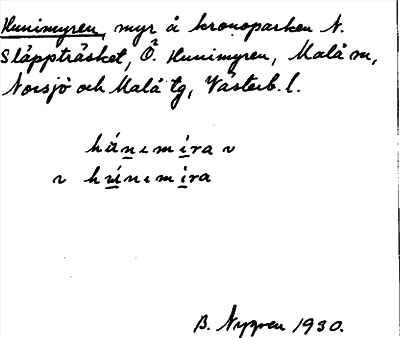 Hunimyren, myr å kronoparken N.
Släppträsket, Ö. Hunimyren, Malå sn,
Norsjö och Malå tg, Västerb. l.
B. Nygren 1930.